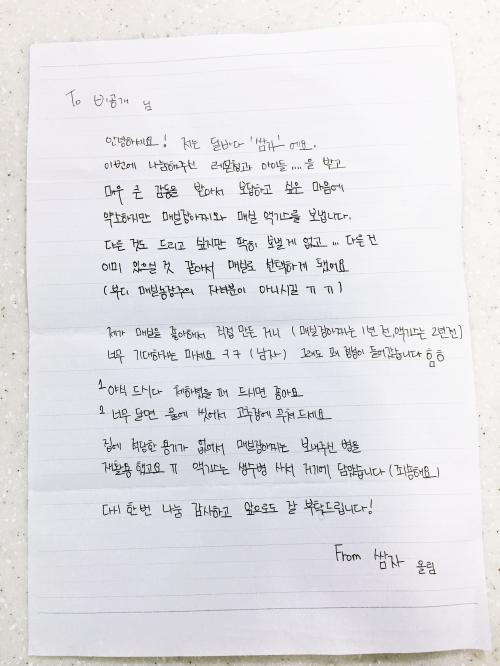 To 비공개 님
안녕하세요! 저는 달바다 '쌈자' 에요.
이번에 나눔해주신 레몬청과 아이들....을 받고
매우 큰 감동을 받아서 보답하고 싶은 마음에
약소하지만 매실장아찌와 매실 액기스를 보냅니다.
다른 것도 드리고 싶지만 딱히 보낼게 없고 ... 다른건
이미 있으실 것 같아서 매실로 선택하게 됐어요
(부디 매실농장주의 자녀분이 아니시길 ㅠㅠ)
제가 매실을 좋아해서 직접 만든 거니 (매실장아찌는 1년 전, 액기스는 2년전)
너무 기대하지는 마세요 ㅋㅋ (남자) 그래도 꽤 정성이 들어갔습니다 흠흠
1 야식 드시다 체하셨을 때 드시면 좋아요
1 너무 달면 물에 씻어서 고추장에 무쳐드세요
집에 적당한 용기가 없어서 매실장아찌는 보내주신 병을
재활용 했고요 ㅠ 액기스는 생수병 사서 거기에 담았습니다 (죄송해요)
다시 한번 나눔 감사하고 앞으로도 잘 부탁드립니다!
From 쌈자 올림